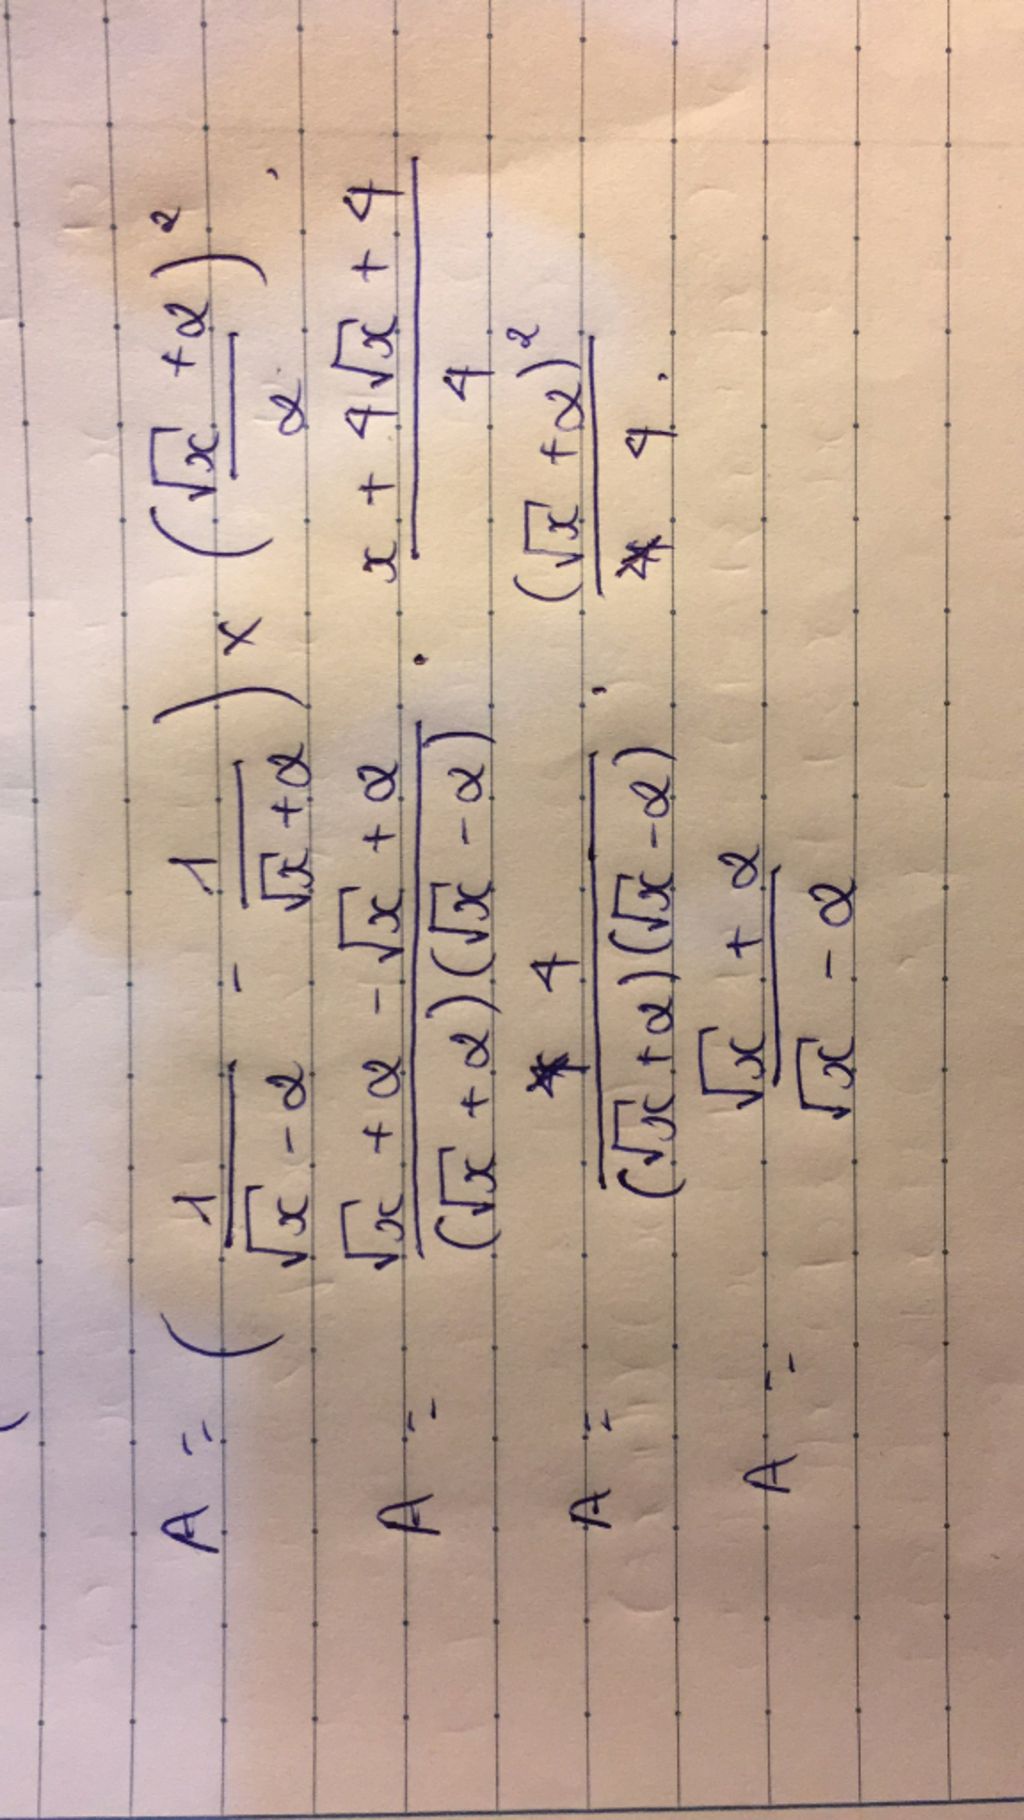 A = ( 1/(√x - 2) - 1/(√x + 2) ) × ( (√x + 2)/2 )²
A = (√x + 2 - √x + 2)/((√x + 2)(√x - 2)) . (x + 4√x + 4)/4
A = 4/((√x + 2)(√x - 2)) . (√x + 2)²/4 .
A = (√x + 2)/(√x - 2)